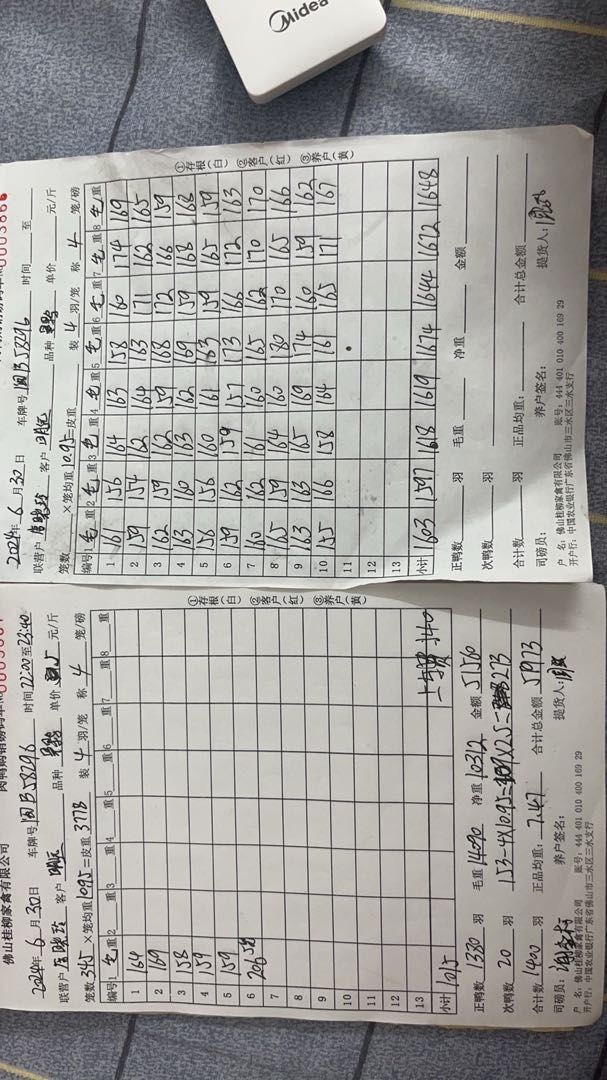 Midea
0003866
2024年6月30日 车牌号 时间 至
联营户 客户 品种 单价 元/斤
笼数 ×笼均重10.95=皮重 装4羽/笼 称4笼/磅
编号 1毛重 2毛重 3毛重 4毛重 5毛重 6毛重 7毛重 8毛重
1 161 156 164 163 158 160 174 169
2 159 154 162 164 163 171 162 165
3 162 159 162 159 168 172 166 159
4 163 160 163 162 169 159 168 168
5 156 156 160 161 163 159 165 159
6 159 162 159 157 173 166 172 163
7 160 162 161 160 165 162 170 170
8 165 159 164 160 180 170 165 166
9 163 163 165 169 174 160 159 162
10 155 166 158 164 161 165 171 167
11
12
13
小计 1603 1597 1618 1619 1674 1644 1672 1648
正鸭数 羽 毛重 净重 金额
次鸭数 羽
合计数 羽 正品均重: 合计总金额
司磅员: 养户签名: 提货人:
户 名: 佛山桂柳家禽有限公司 账号: 444 401 010 400 169 29
开户行: 中国农业银行广东省佛山市三水区三水支行
①存根(白) ②客户(红) ③养户(黄)
佛山桂柳家禽有限公司
2024年6月30日 车牌号 时间22:00至23:40
联营户 客户 品种 单价 5 元/斤
笼数345×笼均重10.95=皮重3778 装4羽/笼 称4笼/磅
编号 1毛重 2 重 3 重 4 重 5 重 6 重 7 重 8 重
1 164
2 169
3 158
4 159
5 159
6 206
7
8
9
10
11
12
13
小计 1015
1340
正鸭数 1380 羽 毛重 14090 净重 10312 金额 51560
次鸭数 20 羽 153-4×10.95=109×2.5=273
合计数 1400 羽 正品均重: 7.47 合计总金额
司磅员: 养户签名: 提货人:
户 名: 佛山桂柳家禽有限公司 账号: 444 401 010 400 169 29
开户行: 中国农业银行广东省佛山市三水区三水支行
①存根(白) ②客户(红) ③养户(黄)